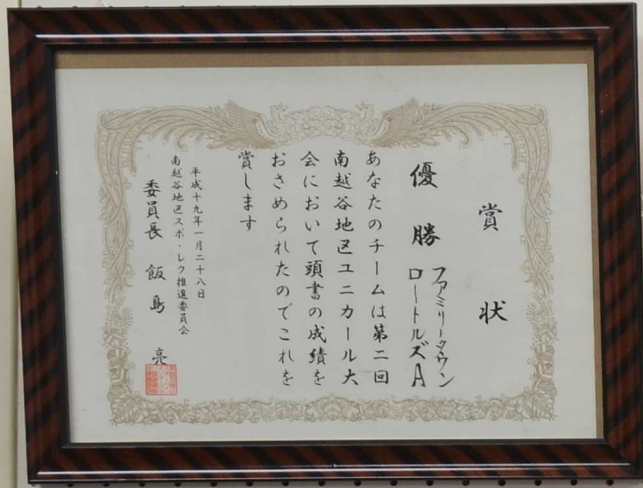 賞状
優勝
ファミリータウン
ロートルズA
あなたのチームは第二回
南越谷地区ユニカール大
会において頭書の成績を
おさめられたのでこれを
賞します
平成十九年一月二十八日
南越谷地区スポ・レク推進委員会
委員長 飯島 亮